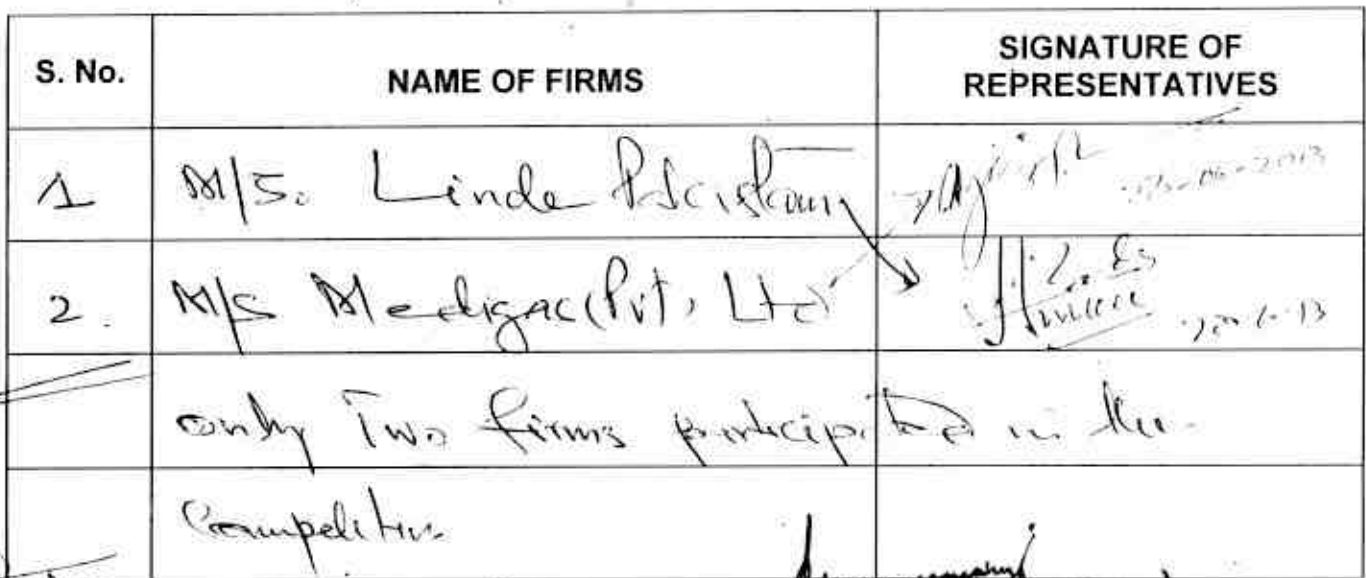 S. No. NAME OF FIRMS SIGNATURE OF REPRESENTATIVES
1 M/S. Linde Pakistan
2. M/S Medigas (Pvt) Ltd
only Two firms participated in the
Competitive